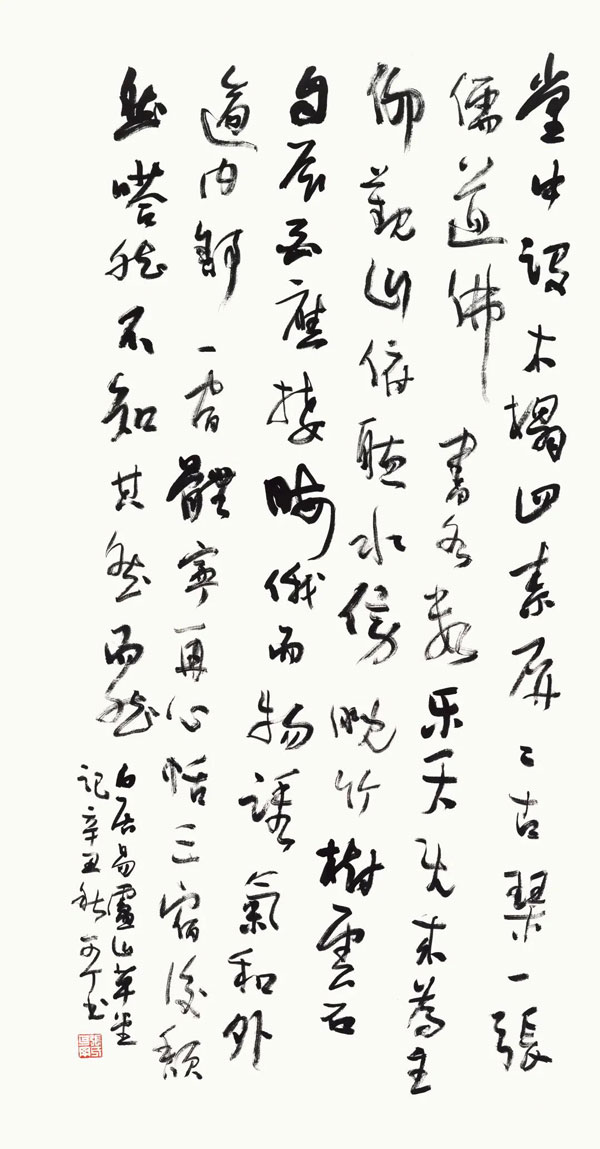 堂中設木榻四素屏二古琴一張
儒道佛書各数乐天既来為主
仰觀山俯聽水傍睨竹樹雲石
自辰酉應接晦俄而物誘氣和外
適内舒一宿體寧再心恬三宿後頽
然嗒然不知其然而然
白居易廬山草堂
記辛丑秋可丁书